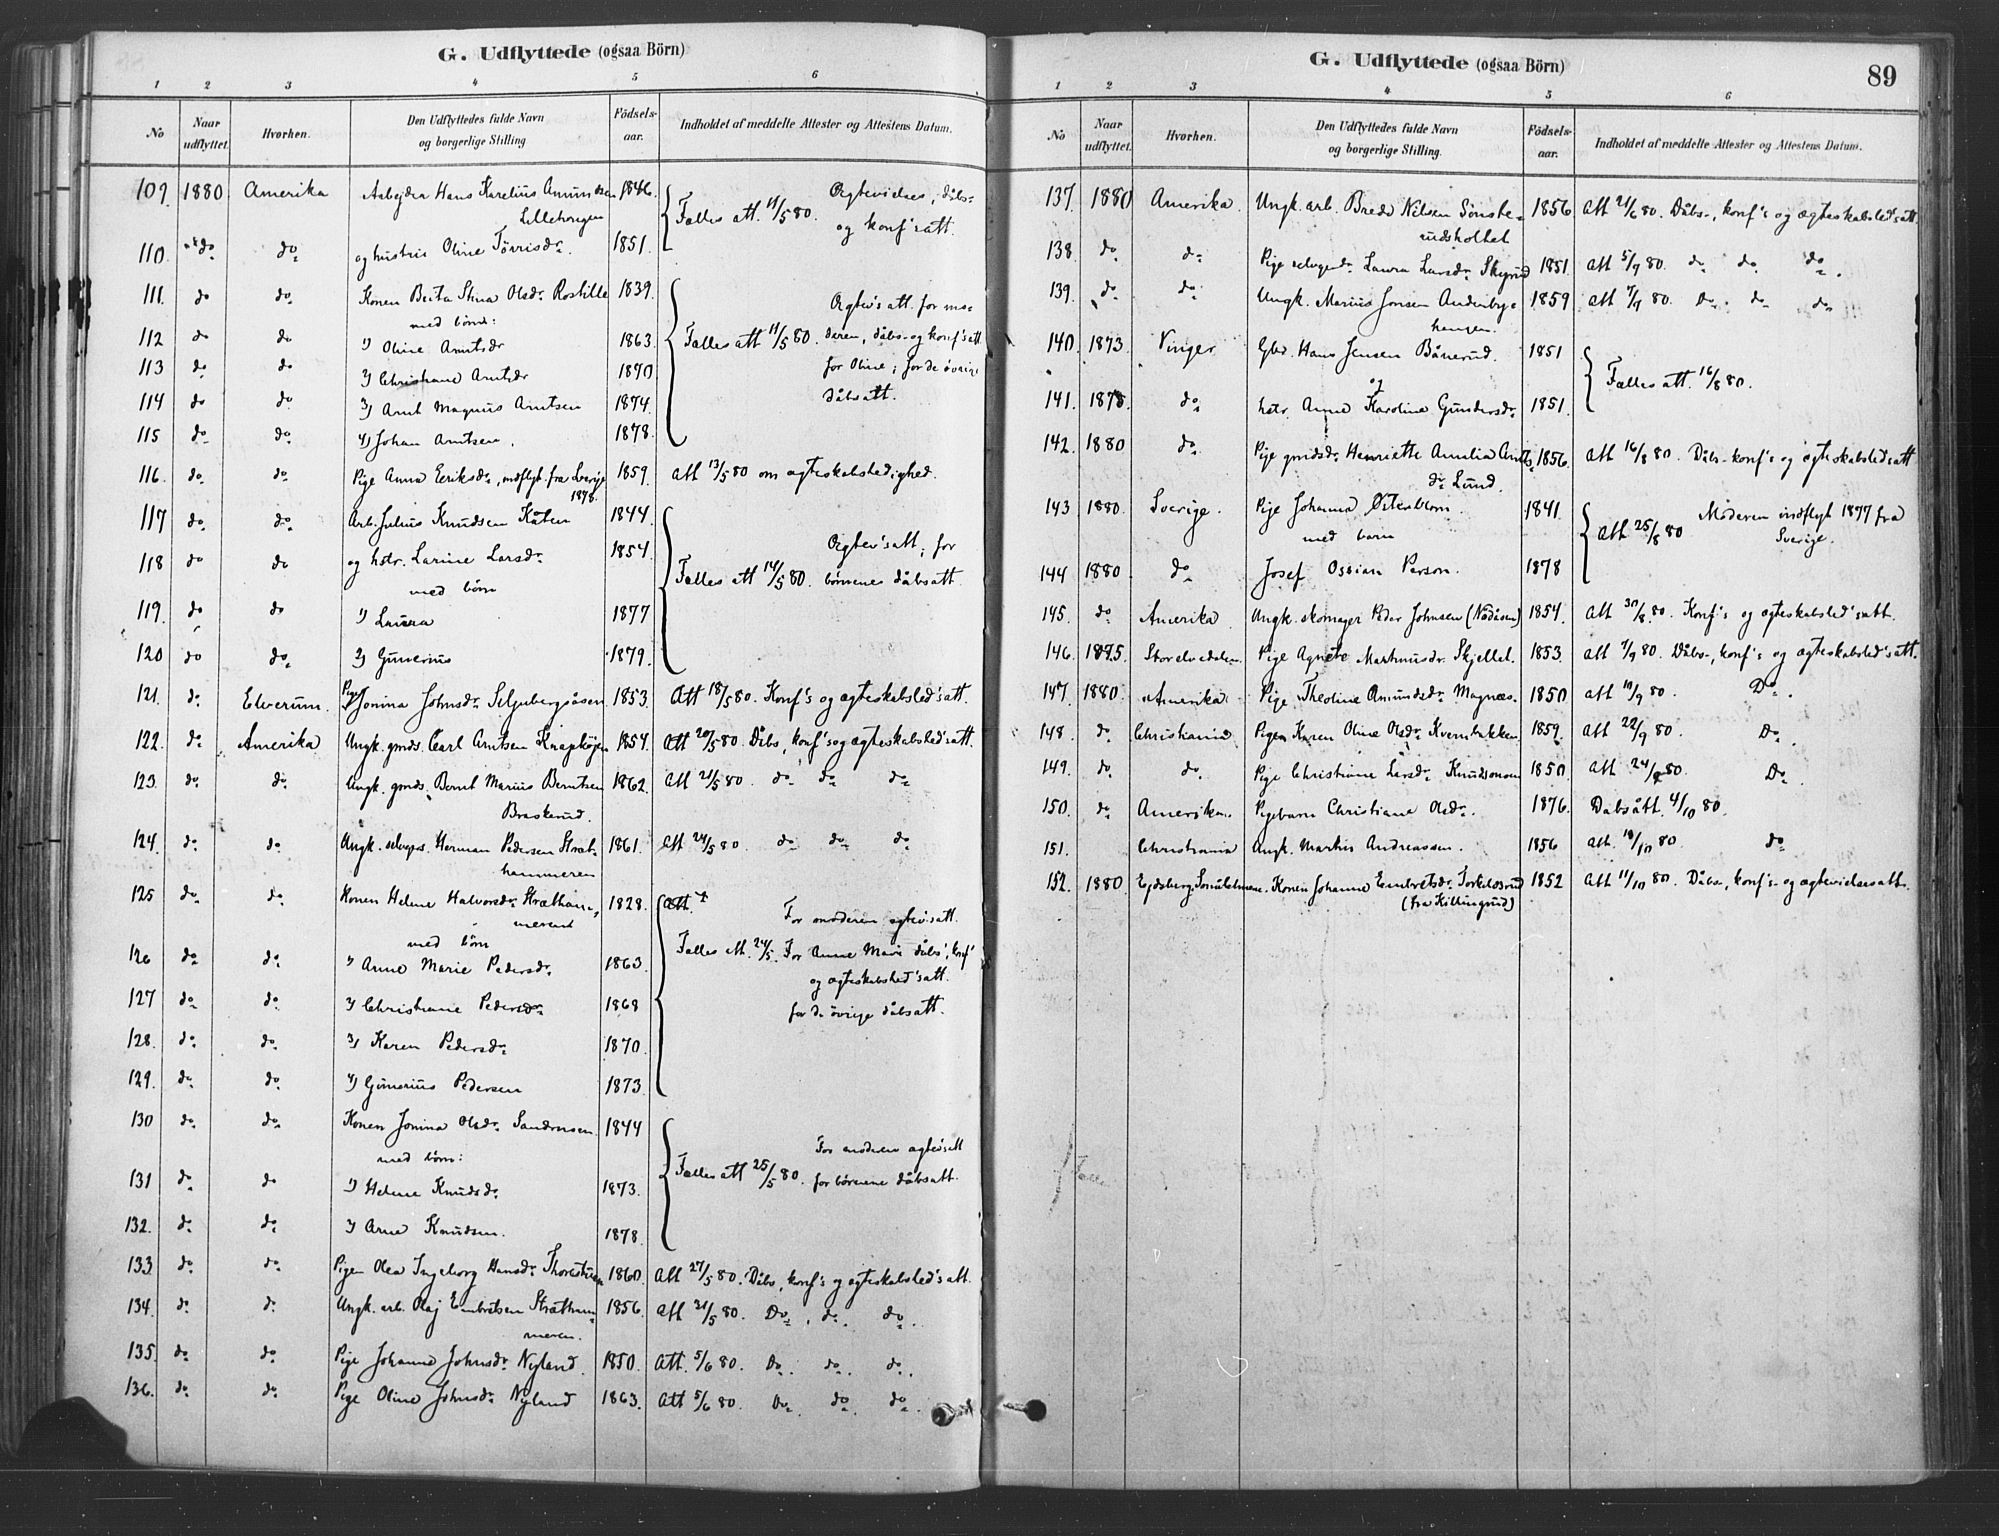 G. Udflyttede (ogsaa Börn)
1 2 3 4 5 6
No Naar udflyttet. Hvorhen. Den Udflyttedes fulde Navn og borgerlige Stilling Födsels-aar. Indholdet af meddelte Attester og Attestens Datum.
109. 1880 Amerika Arbejder Hans Karelius Amundsen 1846. Fælles att. 11/5 80. Ægtevielses, dåbs-
Lillehongen og konf's att.
110. do do og hustru Oline Tørrisdr 1851.
111. do do Konen Berta Stina Olsdr Rostille 1839. Ægtev's att. for mo-
med børn:
112 do do 1) Oline Arntsdr 1863. Fælles att 11/5 80. deren, dåbs- og konf's att
113 do do 2) Christiane Arntsdr 1870 for Oline; for de øvrige
114 do do 3) Arnt Magnus Arntsen 1874. dåbsatt.
115 do do 4) Johan Arntsen. 1878.
116. do. do. Pige Anna Eriksdr, indflyt. fra Sverige 1859. Att 13/5 80 om ægteskabsledighed.
1878.
117 do do Arb. Julius Knudsen Kåten 1844 Ægtev's att, for
118 do do og hstr. Larine Larsdr 1854. Fælles att 14/5 80. børnenes dåbsatt.
med børn
119. do do 1) Laura 1877
120 do do. 2) Gunerius 1879.
121. do Elverum. Pige Jonina Johnsdr Seljubergsåsen 1853. Att 18/5 80. Konf's og ægteskabsled's att.
122. do Amerika Ungk. gmds. Carl Arntsen Knapkøjen 1854. Att 20/5 80. Dåbs, konf's og ægteskabsled's att.
123. do. do. Ungk. gmds. Bernt Marius Berntsen 1862. Att 21/5 80. do do do
Braskerud.
124. do do. Ungk. selvejers. Herman Pedersen Stræt- 1861. Att 24/5 80. do do do
hammeren
125 do. do. Konen Helene Halvorsdr Strætham- 1828. Att. For moderen ægtev's att.
meren
med børn
126 do do. 1) Anne Marie Pedersdr 1863. Fælles att. 24/5. For Anne Marie dåbs', konf'
og ægteskabsled's att.
127 do. do. 2) Christiane Pedersdr 1868 for de øvrige dåbsatt.
128. do do. 3) Karen Pedersdr 1870.
129. do. do. 4) Gunerius Pedersen 1873.
130 do do. Konen Jonina Olsdr 1844 For moderen ægtev's att
med børn:
131 do do 1) Helene Knudsdr 1873. Fælles att 25/5 80. for børnene dåbsatt.
132. do do 2) Arne Knudsen. 1878.
133. do do. Pigen Olea Ingeborg Hansdr 1860. Att 27/5 80. Dåbs, konf's og ægteskabsled's att.
134. do do. Ungk. arb. Olaj Embretsen Strætham- 1856. Att 21/5 80 Do. do. do.
meren.
135. do do. Pige Johanne Johnsdr Nyland. 1850. Att. 5/6 80. Do. do. do.
136. do do. Pige Oline Johnsdr Nyland 1863. Att 5/6 80. Do. do. do.
G. Udflyttede (ogsaa Börn)
89
1 2 3 4 5 6
No Naar udflyttet. Hvorhen. Den Udflyttedes fulde Navn og borgerlige Stilling. Födsels-aar. Indholdet af meddelte Attester og Attestens Datum.
137. 1880 Amerika. Ungk. arb. Brede Nilsen Sønste- 1856 Att 21/6 80. Dåbs-, konf's og ægteskabsled's att
rudsholtet
138. do do Pige selvejerdr Laura Larsdr Skyrud 1851. Att 5/7 80. do do do.
139. do do. Ungk. Marius Jonsen 1859 Att 7/7 80 Do. do do
140. 1873. Vinger Gbr. Hans Jensen Bånerud. 1851
og Fælles att. 16/8 80.
141. 1875. do hstr. Anne Karoline Gundersdr 1851.
142. 1880 do Pige gmdsdr Henriette Amalia Arnts- 1856. Att 16/8 80. Dåbs- konf's og ægteskabsled's att
dr Lund.
143 1880. Sverige. Pige Johanna Østerblom. 1841. Moderen indflyt 1877 fra
med barn Att 25/8 80 Sverige.
144 1880 do Josef Ossian Person. 1878
145. do Amerika. Ungk. skomager Peder Johnsen (Nødåsen) 1854. Att 30/8 80. Konf's og ægteskabsled's att.
146. 1875. Storelvedalen. Pige Agnete Martinusdr Skjellet. 1853. Att 7/9 80. Dåbs-, konf's og ægteskabsled's att.
147. 1880. Amerika. Pige Theoline Amundsdr Magnæs. 1850 Att 10/9 80. Do.
148. do Christiania Pigen Karen Oline Olsdr Kvernbakken 1859. Att 22/9 80. Do.
149. do. do. Pige Christiane Larsdr Knudsmoen 1850 Att 24/9 80 Do.
150. do Amerika. Pigebarn Christiane Olsdr. 1876. Dåbsatt. 4/10 80.
151. Christiania Ungk. Martin Andreassen. 1856 Att. 10/10 80 do
152. 1880 Konen Johanne Embretsdr Torkelsrud 1852 Att 11/10 80. Dåbs-, konf's- og ægtevielsesatt.
(fra Killingrud)